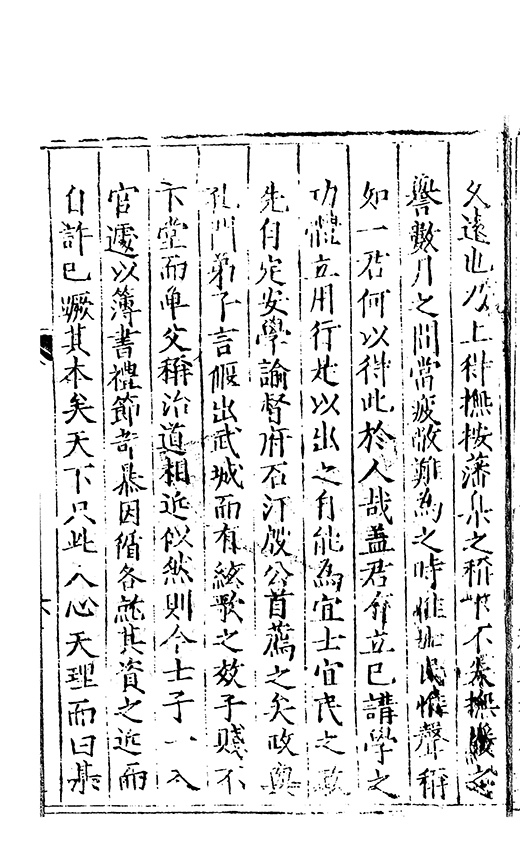 久遠也乃上得撫按藩臬之稱下衆撫緩之
譽數月之間當疲敝難為之時惟民惟聲稱
如一君何以得此於人哉蓋君有立已講學之
功體立用行是以出之自能為宜士宜民之政
先自定安學諭督府石汀殷公首薦之矣政與
孔門弟子言偃出武城而有絃歌之效子賤不
下堂而單父稱治道相近似然則今士子一入
官遽以簿書禮節奇暴因循各就其資之近而
自許已蹶其本矣天下只此人心天理而曰某